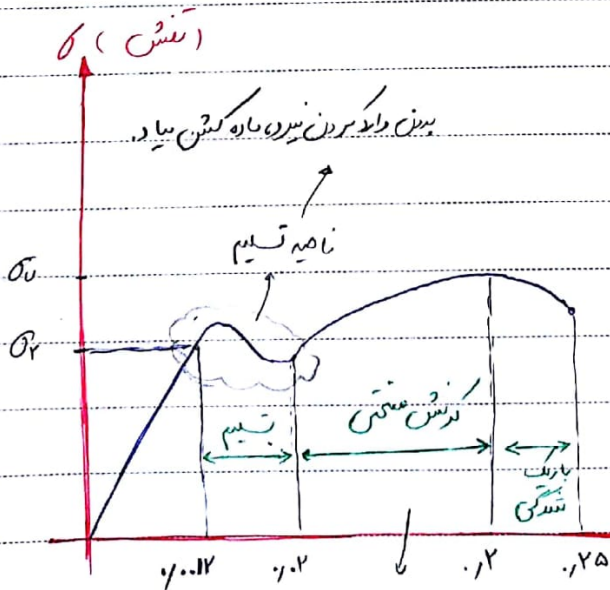 σ (تنش)
بدون وارد کردن نیرو، ماده کشش میاد.
ناحیه تسلیم
σu
σY
تسلیم
کرنش سختی
باریک
شدگی
۰/۰۰۱۲
۰/۰۲
۰/۲
۰/۲۵